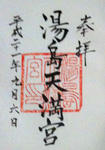 奉拝
湯島天満宮
平成二十一年九月六日